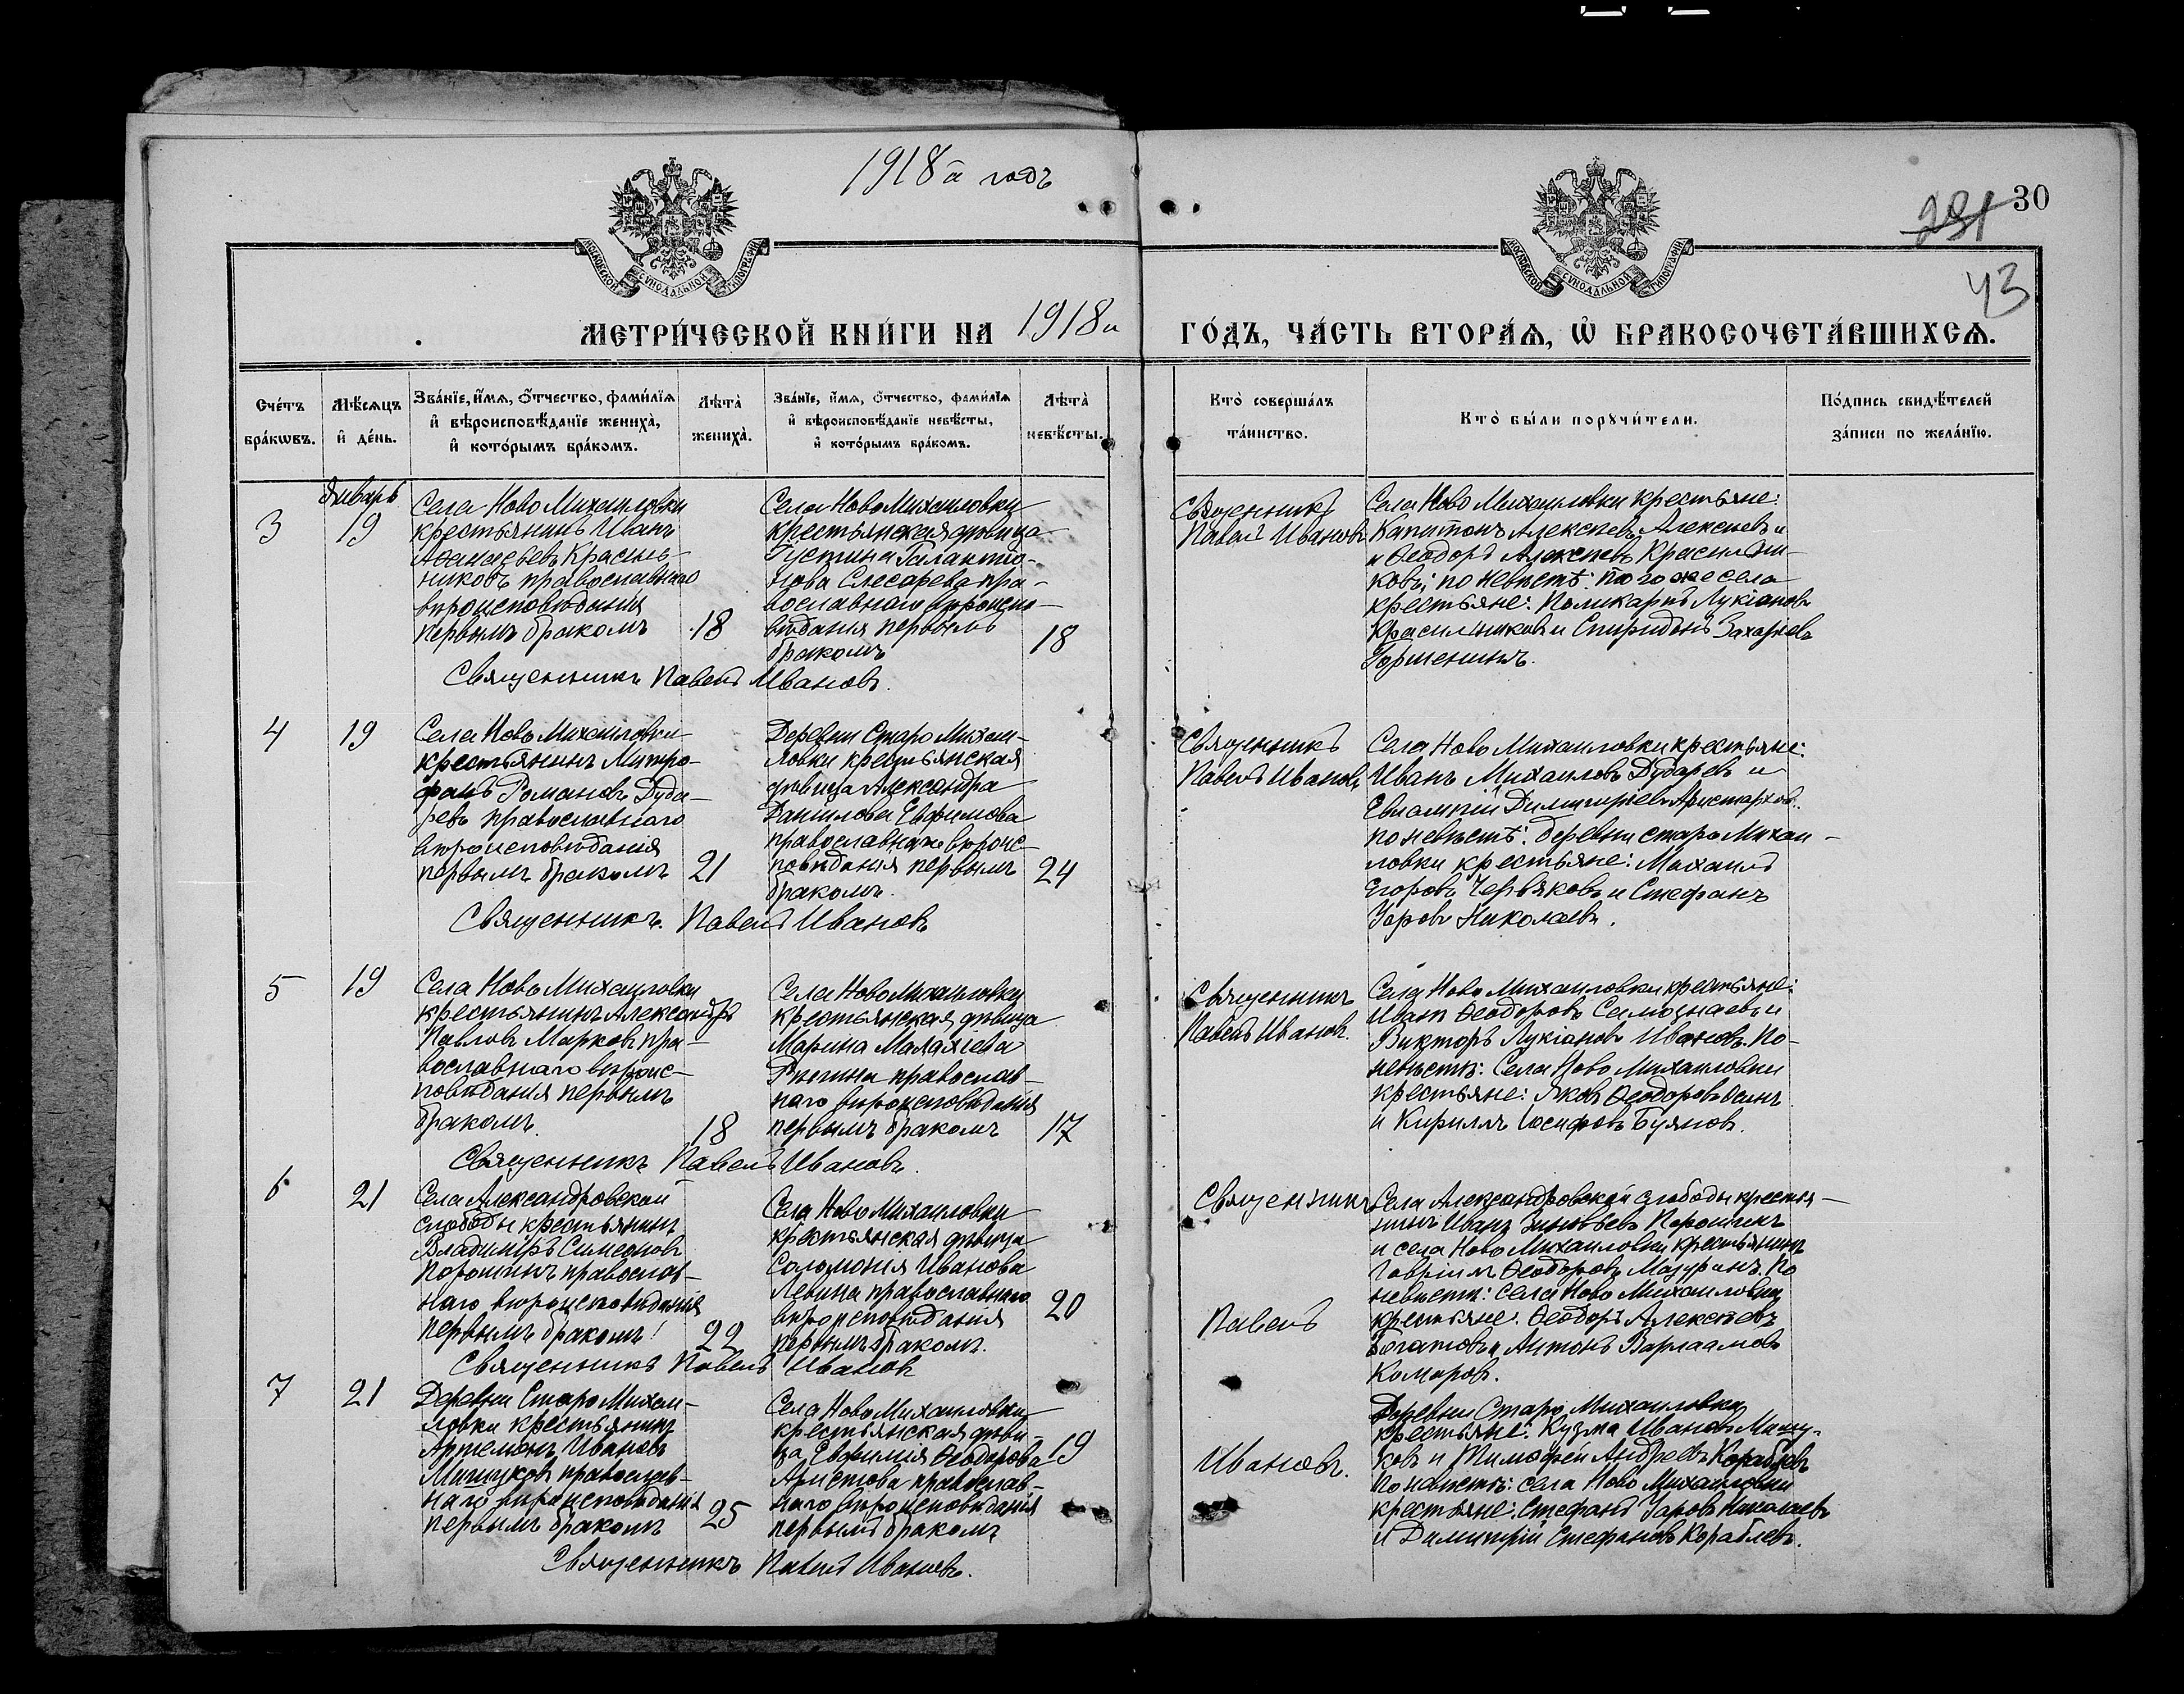 1918й годъ
30
43
МОСКОВСКОЙ СѴНОДАЛЬНОЙ ТИПОГРАФІИ
МОСКОВСКОЙ СѴНОДАЛЬНОЙ ТИПОГРАФІИ
МЕТРИ́ЧЕСКОЙ КНИ́ГИ НА 1918й ГО́ДЪ, ЧА́СТЬ ВТОРА́Ѧ, Ѽ БРАКОСОЧЕТА́ВШИХСѦ.
Сче́тъ бра́кωвъ.
Мѣ́сѧцъ и҆ де́нь.
Зва́нїе, и҆́мѧ, ѻ҆́тчество, фами́лїѧ
и҆ вѣроисповѣ́данїе жениха̀,
и҆ кото́рымъ бра́комъ.
Лѣта̀ жениха̀.
Зва́нїе, и҆́мѧ, ѻ҆́тчество, фами́лїѧ
и҆ вѣроисповѣ́данїе невѣ́сты,
и҆ кото́рымъ бра́комъ.
Лѣта̀ невѣ́сты.
Кто̀ соверша́лъ
та́инство.
Кто̀ бы́ли порꙋчи́тели.
По́дпись свидѣ́телей
за́писи по жела́нїю.
3
Январь
19
Села Ново Михаиловки
крестьянинъ Иванъ
Аѳанасьевъ Красиль-
никовъ православнаго
вѣроисповѣданія
первымъ бракомъ
18
Села Ново Михаиловки
крестьянская дѣвица
Густина Галактіо-
нова Слесарева пра-
вославнаго вѣроиспо-
вѣданія первымъ
бракомъ
18
Священникъ Павелъ Ивановъ.
Священникъ
Павелъ Ивановъ
Села Ново Михаиловки крестьяне:
Капитонъ Алексѣевъ Алексѣевъ и
и Ѳеодоръ Алексѣевъ Красильни-
ковъ; по невѣстѣ: того же села
крестьяне: Поликарпъ Лукіановъ
Красильниковъ и Спиридонъ Захаріевъ
4
19
Села Ново Михаиловки
крестьянинъ Митро-
фанъ Романовъ Дуда-
ревъ православнаго
вѣроисповѣданія
первымъ бракомъ
21
Деревни Старо Михаи-
ловки крестьянская
дѣвица Александра
Даніилова Евфимова
православнаго вѣроис-
повѣданія первымъ
бракомъ.
24
Священникъ. Павелъ Ивановъ
Священникъ
Павелъ Ивановъ
Села Ново Михаиловки крестьяне:
Иванъ Михаиловъ Дударевъ и
Евлампій Димитріевъ Аристархов.
по невѣстѣ: деревни Старо Михаи-
ловки крестьяне: Михаилъ
Егоровъ Червяковъ и Стефанъ
Уаровъ Николаевъ.
5
19
Села Ново Михаиловки
крестьянинъ Александръ
Павловъ Марковъ пра-
вославнаго вѣроис-
повѣданія первымъ
бракомъ.
18
Села Ново Михаиловки
крестьянская дѣвица
Марина Малахіева
православ-
наго вѣроисповѣданія
первымъ бракомъ
17
Священникъ Павелъ Ивановъ.
Священникъ
Павелъ Ивановъ.
Села Ново Михаиловки крестьяне:
Иванъ Ѳеодоровъ и
Викторъ Лукіановъ Ивановъ. По
невѣстѣ: Села Ново Михаиловки
крестьяне: Яковъ Ѳеодоровъ
и Кириллъ Іосифовъ Буяновъ.
6
21
Села Александровской
слободы крестьянинъ
Владиміръ Симеоновъ
Порошинъ православ-
наго вѣроисповѣданія
первымъ бракомъ
22
Села Ново Михаиловки
крестьянская дѣвица
Соломонія Иванова
Левина православнаго
вѣроисповѣданія
первымъ бракомъ.
20
Священникъ Павелъ Ивановъ
Священникъ
Павелъ
Села Александровской слободы крестья-
нинъ Иванъ Зиновьевъ Порошинъ
и села Ново Михаиловки крестьянинъ
Гавріилъ Ѳеодоровъ Мазуринъ. По
невѣстѣ: села Ново Михаиловки
крестьяне: Ѳеодоръ Алексѣевъ
Богатовъ и Антонъ Варлаамовъ
Комаровъ.
7
21
Деревни Старо Михаи-
ловки крестьянинъ
Артемонъ Ивановъ
Мишуковъ православ-
наго вѣроисповѣданія
первымъ бракомъ
25
Села Ново Михаиловки
крестьянская дѣви-
ца Евфимія Ѳеодорова
Аристова православ-
наго вѣроисповѣданія
первымъ бракомъ
19
Священникъ Павелъ Ивановъ.
Ивановъ.
Деревни Старо Михаиловки
крестьяне: Кузма Ивановъ Мишу-
ковъ и Тимофей Андреевъ Кораблевъ
По невѣстѣ: села Ново Михаиловки
крестьяне: Стефанъ Уаровъ Николаевъ
и Димитрій Стефановъ Кораблевъ.